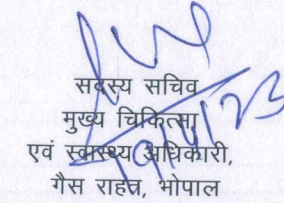 सदस्य सचिव
मुख्य चिकित्सा
एवं स्वास्थ्य अधिकारी,
गैस राहत, भोपाल
19/4/23